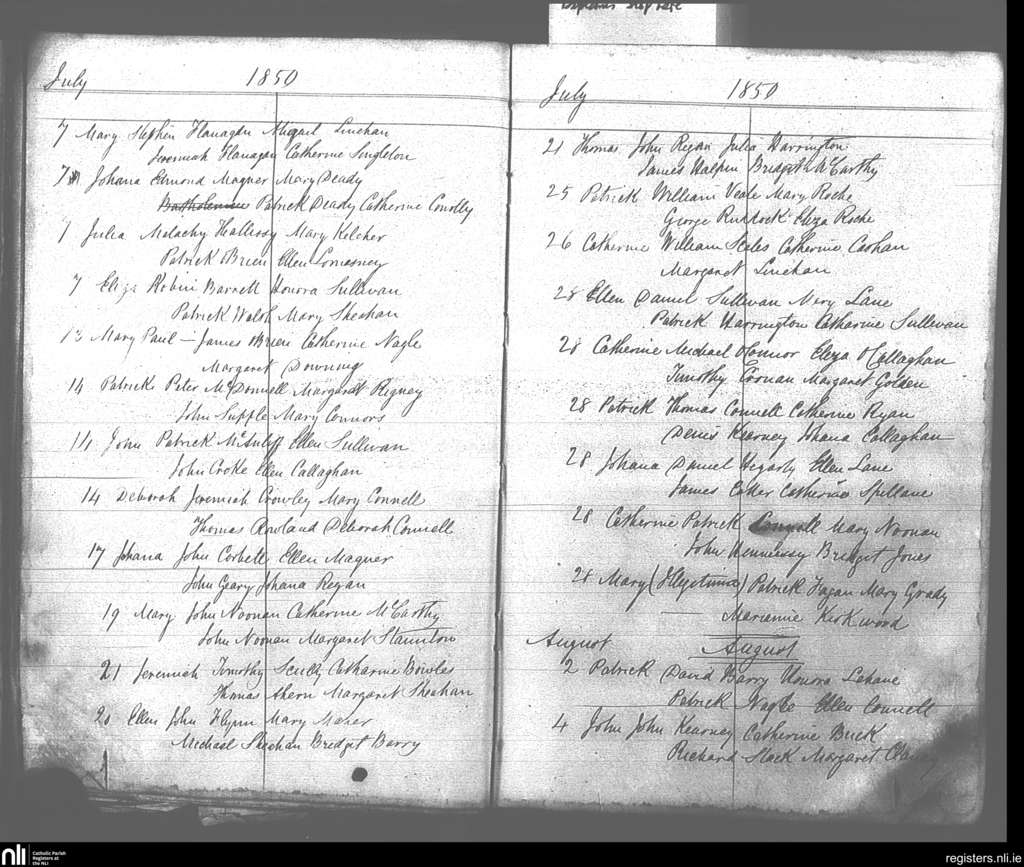 July 1850
7 Mary Stephen Flanagan Abigail Linehan
Jeremiah Flanagan Catherine Singleton
7 Johana Edmond Magner Mary Deady
Bartholemew Patrick Deady Catherine Conolly
7 Julia Melachy Hallissy Mary Kelcher
Patrick OBrien Ellen
7 Eliza Robin Barrett Honora Sullivan
Patrick Walsh Mary Sheehan
13 Mary Paul - James OBrien Catherine Nagle
Margaret Downing
14 Patrick Peter McDonnell Margaret Rigney
John Supple Mary Connors
14 John Patrick McAuliff Ellen Sullivan
John Croke Ellen Callaghan
14 Deborah Jeremiah Crowley Mary Connell
Thomas Rowland Deborah Connell
17 Johana John Corbett Ellen Magner
John Geary Johana Regan
19 Mary John Noonan Catherine McCarthy
John Noonan Margaret Staunton
21 Jeremiah Timothy Scully Catharine Bowles
Thomas Ahern Margaret Sheehan
20 Ellen John Flynn Mary Maher
Michael Sheehan Bridget Barry
July 1850
21 Thomas John Regan Julia Harrington
James Halpin Bridget McCarthy
25 Patrick William Veale Mary Roche
George Ruddock Eliza Roche
26 Catherine William Catherine Cashan
Margaret Linehan
28 Ellen Daniel Sullivan Mary Lane
Patrick Harrington Catharine Sullivan
28 Catherine Michael OConnor Eliza OCallaghan
Timothy Margaret Golden
28 Patrick Thomas Connell Catherine Ryan
Denis Kearney Johana Callaghan
28 Johana Daniel Hegarty Ellen Lane
James Catherine Spillane
28 Catherine Patrick Connell Mary Noonan
John Hennessy Bridget Jones
28 Mary (Illegitimate) Patrick Fagan Mary Grady
Marianne Kirkwood
August August
2 Patrick David Barry Honora Lehane
Patrick Nagle Ellen Connell
4 John John Kearney Catherine Buck
Richard Slack Margaret
nli Catholic Parish Registers at the NLI
registers.nli.ie